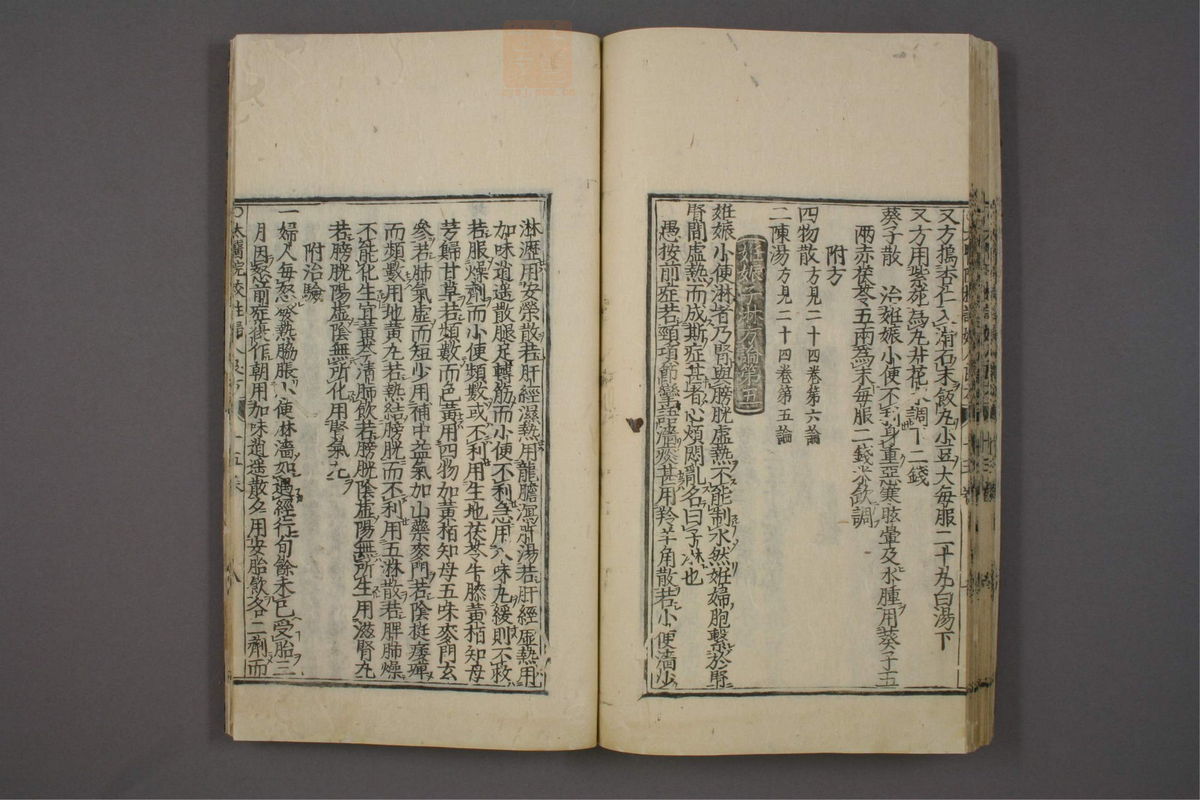 又方搗杏仁入滑石末飯丸小豆大每服二十丸白湯下
又方用紫菀爲丸井花水調下二錢
葵子散 治姙娠小便不利身重惡寒眩暈及水腫用葵子五
兩赤茯苓五兩爲末每服二錢米飲調
附方
四物散方見二十四卷第六論
二陳湯方見二十四卷第五論
姙娠子淋方論第五
姙娠小便淋者乃腎與膀胱虛熱不能制水然姙婦胞繫於腎
腎間虛熱而成斯症甚者心煩悶亂名曰子淋也
愚按前症若頸項筋攣語澁痰甚用羚羊角散若小便濇少
淋瀝用安榮散若肝經濕熱用龍膽瀉肝湯若肝經虛熱用
加味逍遙散腿足轉筋而小便不利急用八味丸緩則不救
若服燥劑而小便頻數或不利用生地茯苓牛膝黃栢知母
芎歸甘草若頻數而色黃用四物加黃栢知母五味麥門玄
參若肺氣虛而短少用補中益氣加山藥麥門若陰挺痿痺
而頻數用地黃丸若熱結膀胱而不利用五淋散若脾肺燥
不能化生宜黃芩清肺飲若膀胱陰虛陽無所生用滋腎丸
若膀胱陽虛陰無所化用腎氣丸
附治驗
一婦人每怒發熱脇脹小便淋濇如遇經行旬餘未已受胎三
月因怒前症復作朝用加味逍遙散夕用安胎飲各二劑而
○太醫院校註婦人良方 十五卷 八